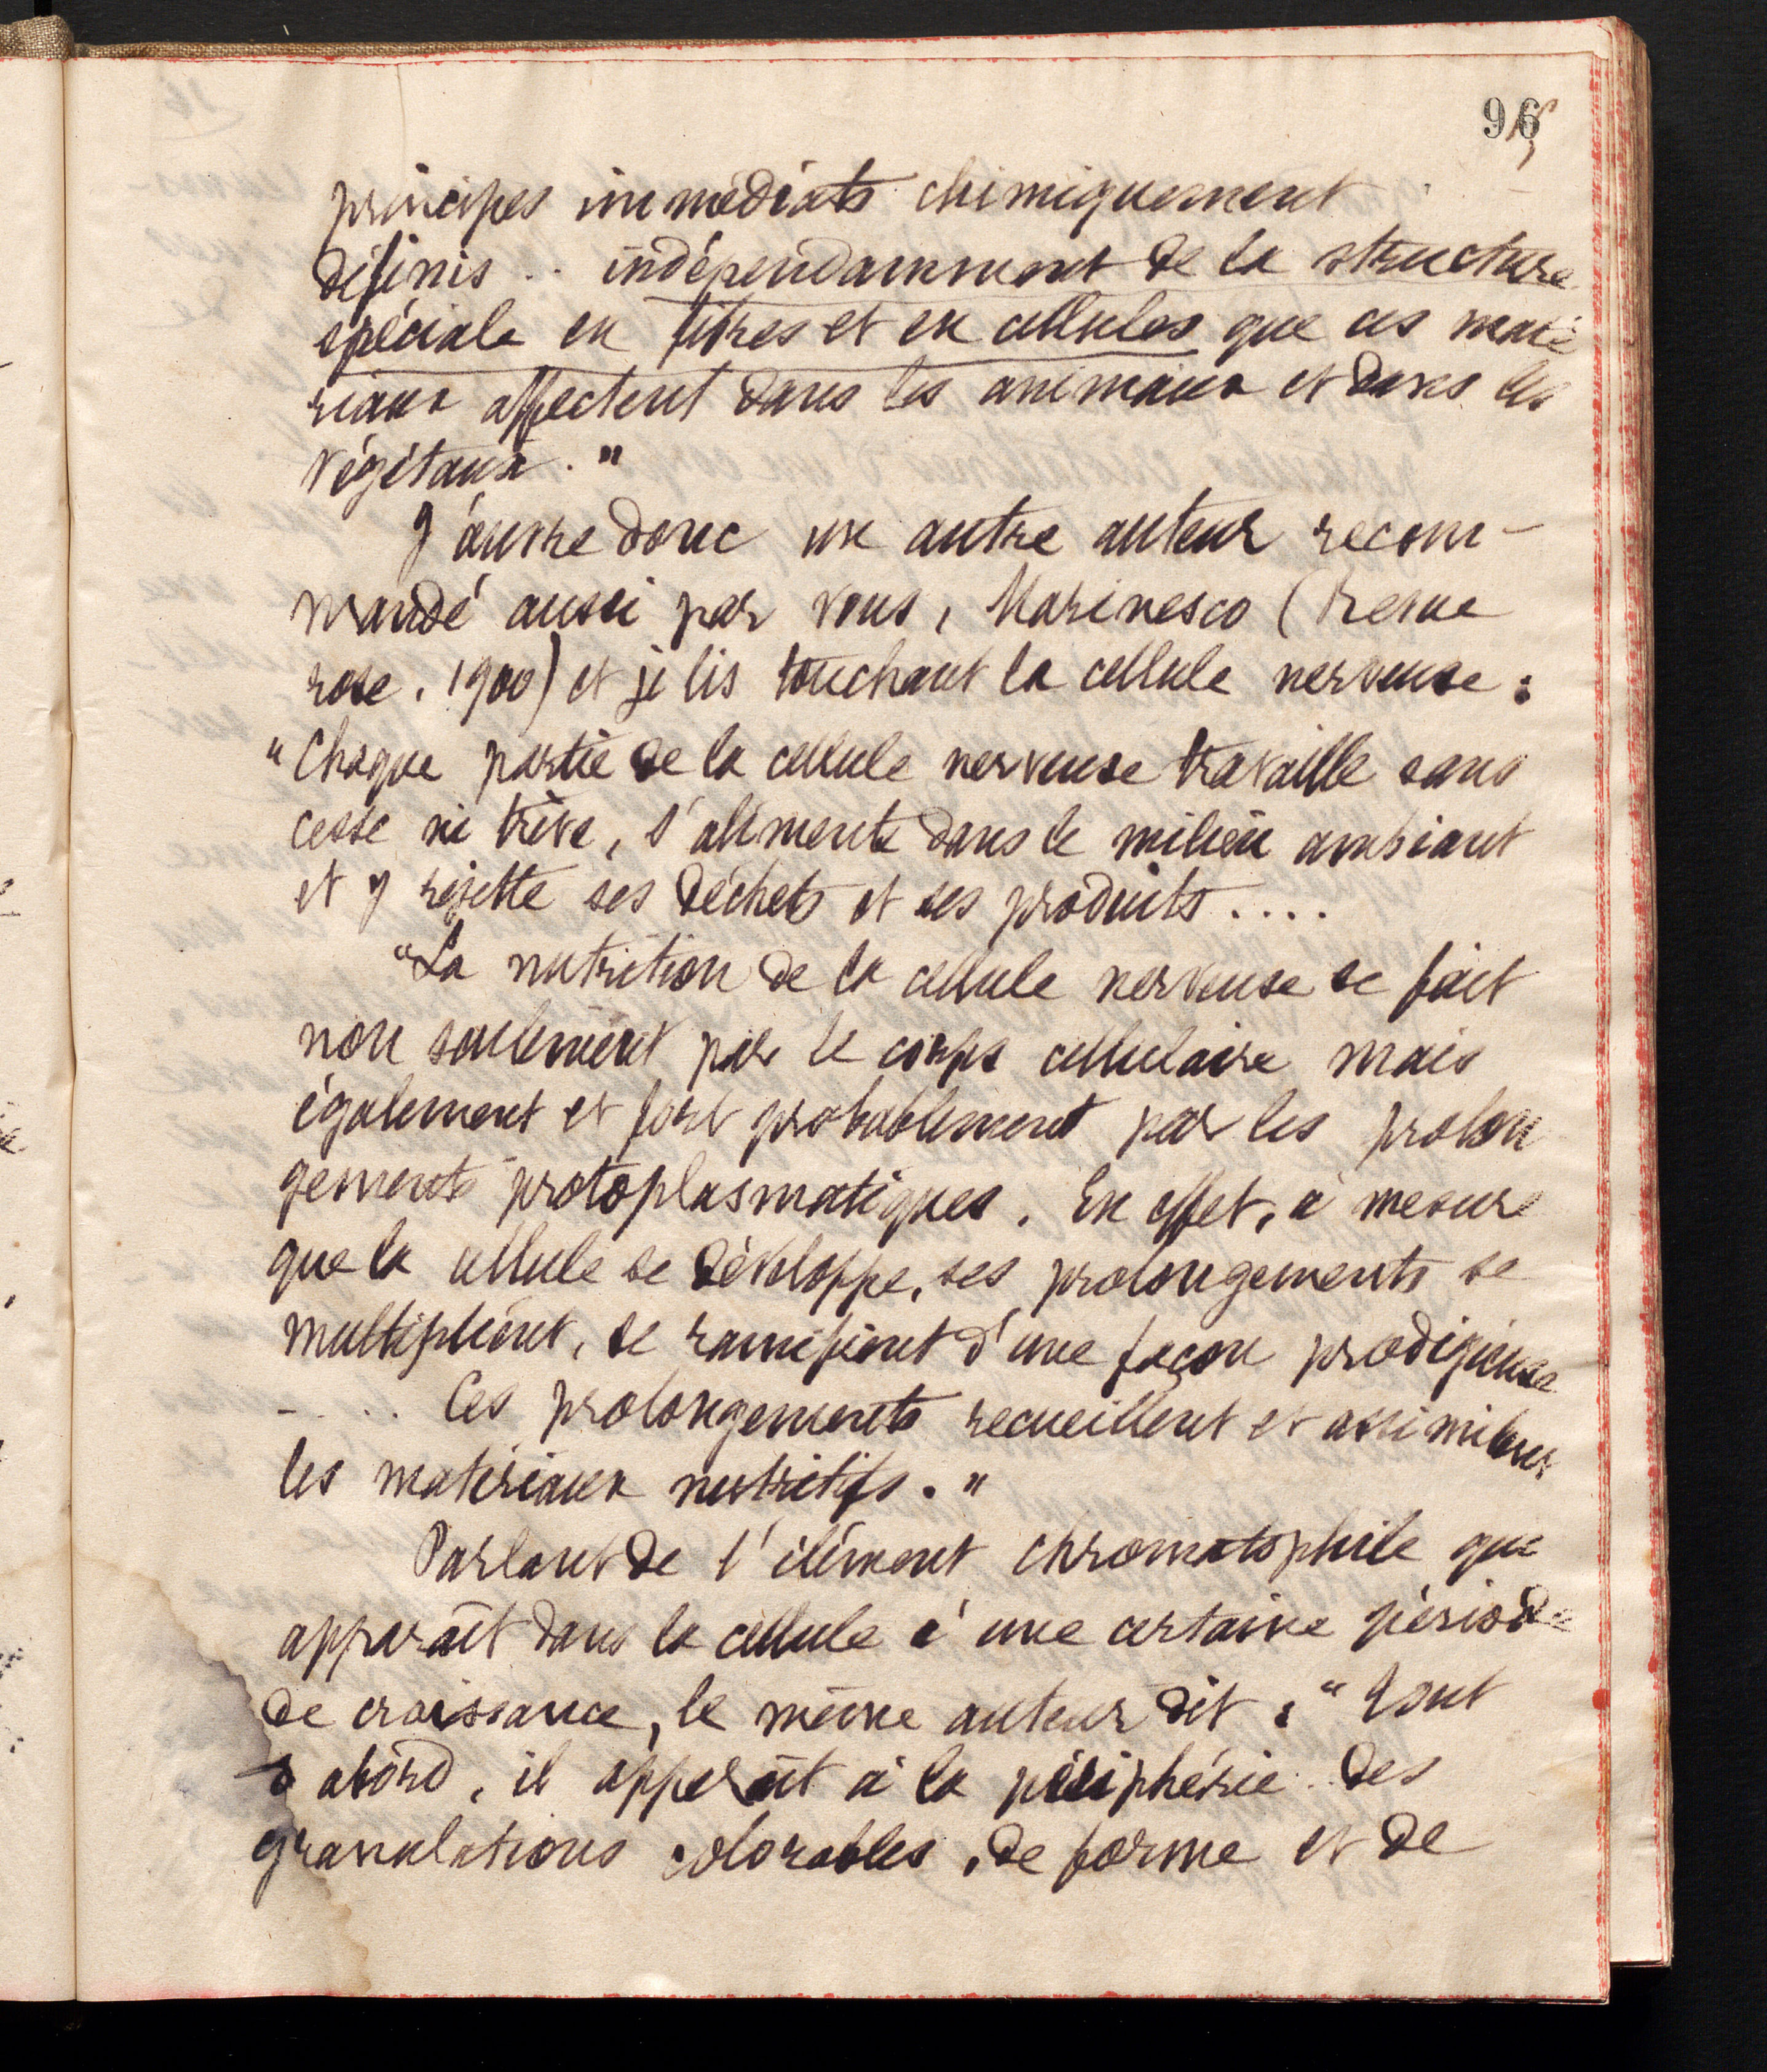 96
principes immédiats chimiquement
définis .. indépendamment de la structure
spéciale en fibres et en cellules que ces maté
riaux affectent dans les animaux et dans les
végétaux. "
J'ouvre donc un autre auteur recom-
mandé aussi par vous, Marinesco (Revue
rose. 1900) et je lis touchant la cellule nerveuse :
"Chaque partie de la cellule nerveuse travaille sans
cesse ni trève, s'alimente dans le milieu ambiant
et y rejette ses déchets et ses produits ....
"La nutrition de la cellule nerveuse se fait
non seulement par le corps cellulaire mais
également et fort probablement par les prolon
gements protoplasmatiques. En effet, à mesure
que la cellule se développe, ses prolongements se
multiplient, se ramifient d'une façon prodigieuse
..... Ces prolongements recueillent et assimilent
les matériaux nutritifs. "
Parlant de l'élément chromatophile qui
apparaît dans la cellule à une certaine période
de croissance, le même auteur dit : " Tout
d'abord, il apparaît à la périphérie des
granulations colorables, de forme et de